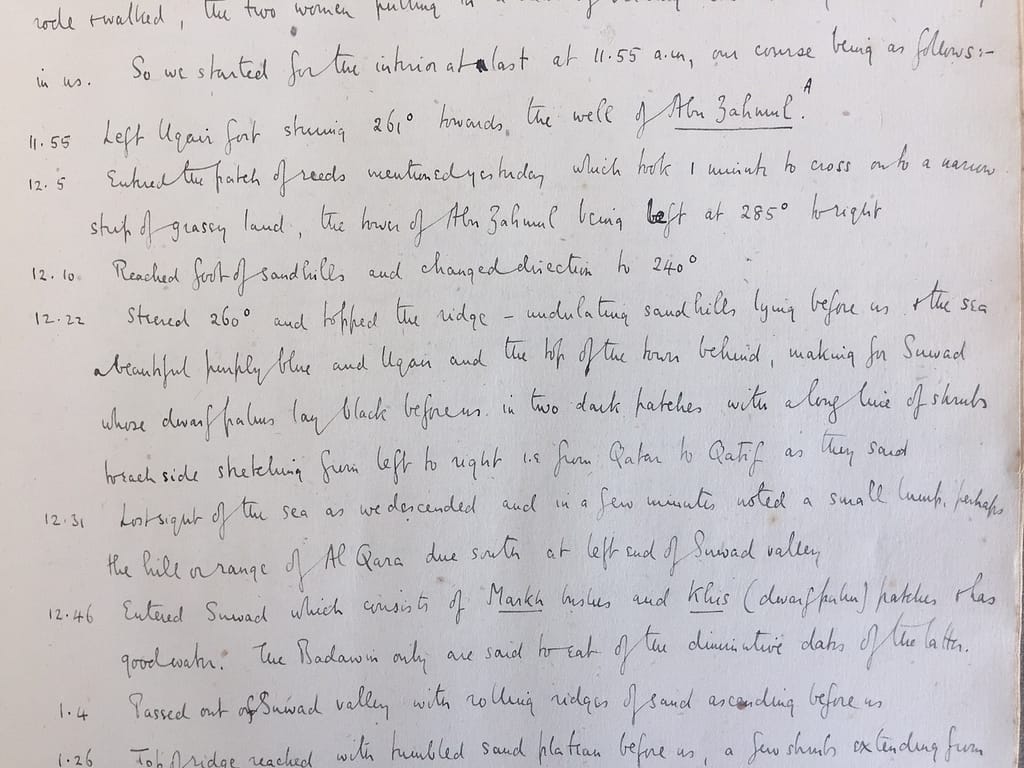 rode & walked, the two women putting in a
in us. So we started for the interior at last at 11.55 a.m, our course being as follows:-
11.55 Left Uqair fort steering 261° towards the well of Abu Zahmul.A
12.5 Entered the patch of reeds mentioned yesterday which took 1 minute to cross onto a narrow
strip of grassy land, the tower of Abu Zahmul being left at 285° to right
12.10 Reached foot of sandhills and changed direction to 240°
12.22 Steered 260° and topped the ridge – undulating sandhills lying before us & the sea
a beautiful purply blue and Uqair and the top of the tower behind, making for Suwad
whose dwarf palms lay black before us in two dark patches with a long line of shrubs
to each side stretching from left to right i.e from Qatar to Qatif as they said
12.31 Lost sight of the sea as we descended and in a few minutes noted a small hump, perhaps
the hill or range of Al Qara due south at left end of Suwad valley
12.46 Entered Suwad which consists of Markh bushes and Khis (dwarf palm) patches & has
good water. The Badawin only are said to eat of the diminutive dates of the latter.
1.4 Passed out of Suwad valley with rolling ridges of sand ascending before us
1.26 Top of ridge reached with tumbled sand plateau before us, a few shrubs extending from